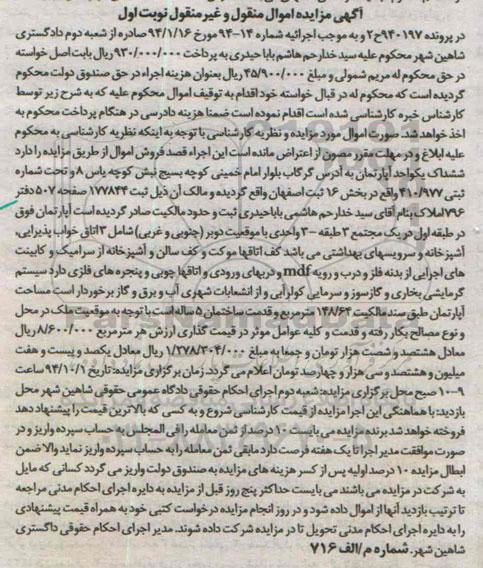 آگهی مزایده اموال منقول و غیر منقول نوبت اول
در پرونده ۹۴۰۱۹۷ح۲ و به موجب اجرائیه شماره ۱۴-۹۴ مورخ ۹۴/۱/۱۶ صادره از شعبه دوم دادگستری
شاهین شهر محکوم علیه سید خدارحم هاشم بابا حیدری به پرداخت ۹۳۰/۰۰۰/۰۰۰ ریال بابت اصل خواسته
در حق محکوم له مریم شمولی و مبلغ ۴۵/۹۰۰/۰۰۰ ریال بعنوان هزینه اجراء در حق صندوق دولت محکوم
گردیده است که محکوم له در قبال خواسته خود اقدام به توقیف اموال محکوم علیه که به شرح زیر توسط
کارشناس خبره کارشناسی شده است اقدام نموده است ضمنا هزینه دادرسی در هنگام پرداخت محکوم به
اخذ خواهد شد. صورت اموال مورد مزایده و نظریه کارشناسی با توجه به اینکه نظریه کارشناسی به محکوم
علیه ابلاغ و در مهلت مقرر مصون از اعتراض مانده است این اجراء قصد فروش اموال از طریق مزایده را دارد
ششدانگ یکواحد آپارتمان به آدرس گرگاب بلوار امام خمینی کوچه بسیج نبش کوچه یاس ۸ و تحت شماره
ثبتی ۴۱۰/۹۷۷ واقع در بخش ۱۶ ثبت اصفهان واقع گردیده و مالک آن ذیل ثبت ۱۷۷۸۴۴ صفحه ۵۰۷ دفتر
۷۹۶ املاک بنام آقای سید خدارحم هاشمی باباحیدری ثبت و حدود مالکیت صادر گردیده است آپارتمان فوق
در طبقه اول در یک مجتمع ۳ طبقه -۳ واحدی با موقعیت دوبر (جنوبی و غربی) شامل ۳ اتاق خواب پذیرایی،
آشپزخانه و سرویسهای بهداشتی می باشد کف اتاقها موکت و کف سالن و آشپزخانه از سرامیک و کابینت
های اجرایی از بدنه فلز و درب و رویه mdf و دربهای ورودی و اتاقها چوبی و پنجره های فلزی دارد سیستم
گرمایشی بخاری و گازسوز و سرمایی کولرآبی و از انشعابات شهری آب و برق و گاز برخوردار است مساحت
آپارتمان طبق سند مالکیت ۱۴۸/۶۴ مترمربع و قدمت ساختمان ۵ ساله است با توجه به موقعیت ملک در محل
و نوع مصالح بکار رفته و قدمت و کلیه عوامل موثر در قیمت گذاری ارزش هر مترمربع ۸/۶۰۰/۰۰۰ ریال
معادل هشتصد و شصت هزار تومان و جمعا به مبلغ ۱/۲۷۸/۳۰۴/۰۰۰ ریال معادل یکصد و بیست و هفت
میلیون و هشتصد و سی هزار و چهارصد تومان اعلام می گردد. زمان برگزاری مزایده: تاریخ ۹۴/۱۰/۱ ساعت
۹-۱۰ صبح محل برگزاری مزایده: شعبه دوم اجرای احکام حقوقی دادگاه عمومی حقوقی شاهین شهر محل
بازدید: با هماهنگی این اجرا مزایده از قیمت کارشناسی شروع و به کسی که بالاترین قیمت را پیشنهاد دهد
فروخته خواهد شد برنده مزایده می بایست ۱۰ درصد از ثمن معامله را فی المجلس به حساب سپرده واریز و در
صورت موافقت مدیر اجرا تا یک هفته فرصت دارد مابقی ثمن معامله را به حساب سپرده واریز نماید والا ضمن
ابطال مزایده ۱۰ درصد اولیه پس از کسر هزینه های مزایده به صندوق دولت واریز می گردد کسانی که مایل
به شرکت در مزایده می باشند می بایست حداکثر پنج روز قبل از مزایده به دایره اجرای احکام مدنی مراجعه
تا ترتیب بازدید آنها از اموال داده شود و در روز انجام مزایده درخواست کتبی خود به همراه قیمت پیشنهادی
را به دایره اجرای احکام مدنی تحویل تا در مزایده شرکت داده شوند. مدیر اجرای احکام حقوقی دادگستری
شاهین شهر. شماره م/الف ۷۱۶